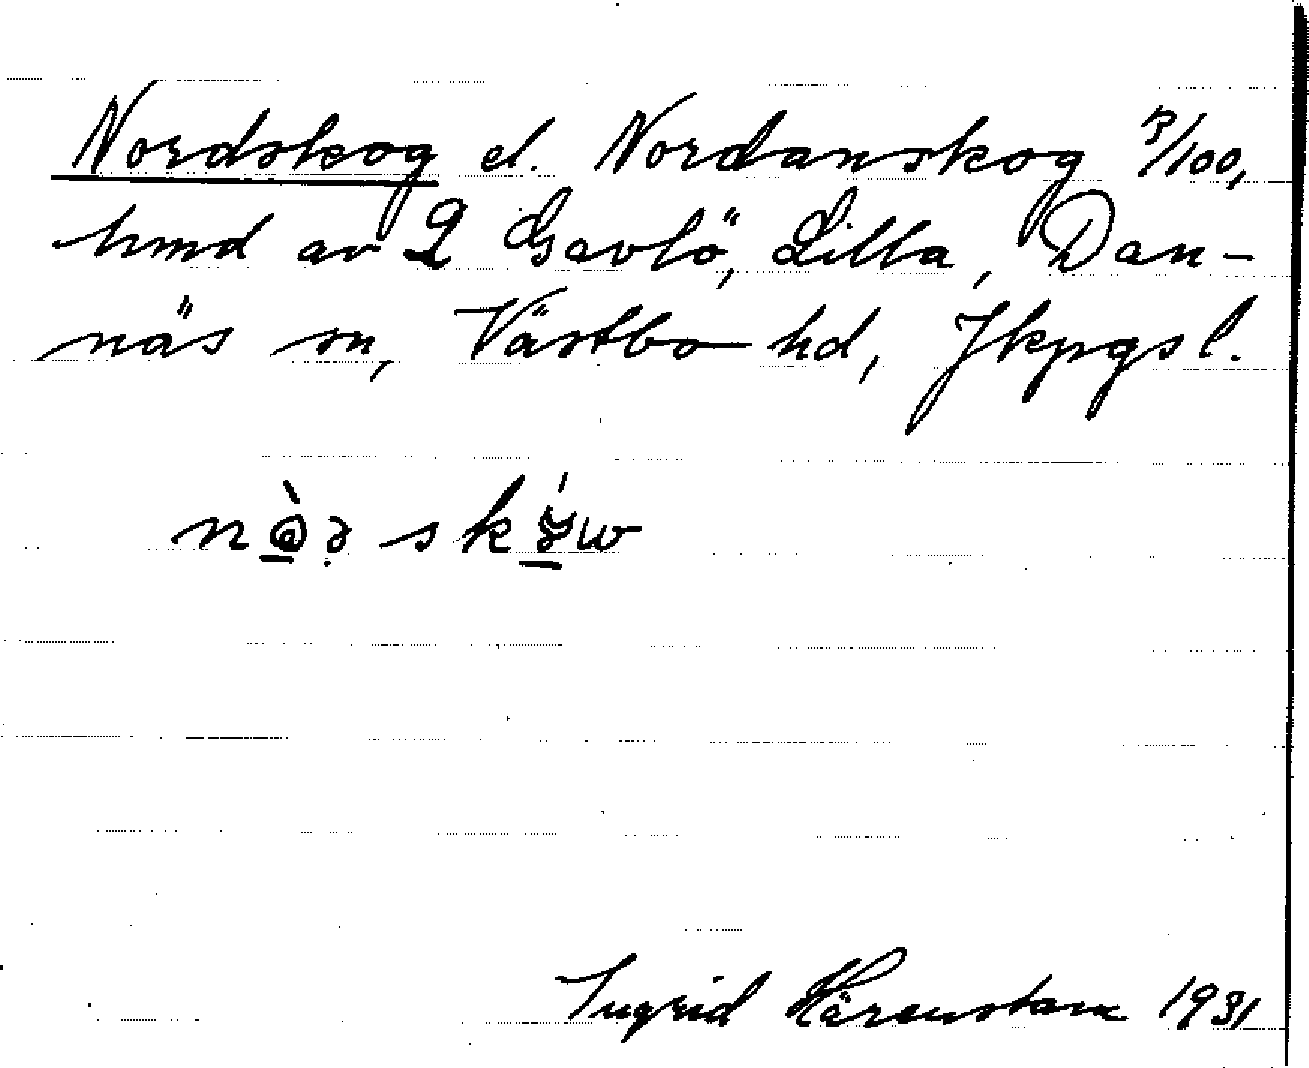 Nordskog el. Nordanskog 3/100,
hmd av 2 Gavlö, Lilla, Dan-
näs sn, Västbo hd, Jkpgs l.
Ingrid Härenstam 1931